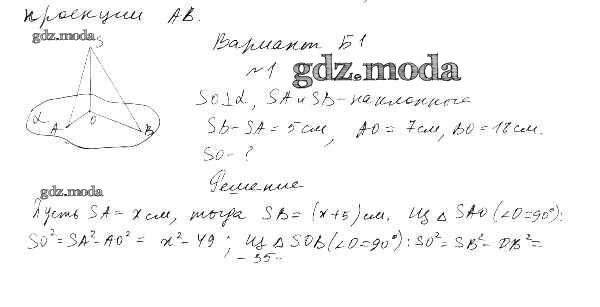 проекции АВ.
gdz.moda
S
Вариант Б1
№1 gdz.moda
SO⊥α, SA и SB – наклонные
α A O B
SB – SA = 5 см, AO = 7 см, BO = 18 см.
SO – ?
Решение
gdz.moda
Пусть SA = x см, тогда SB = (x+5) см. Из △ SAO (∠O=90°):
SO² = SA² – AO² = x² – 49 ; Из △ SOB (∠O=90°): SO² = SB² – OB² =
– 55 –